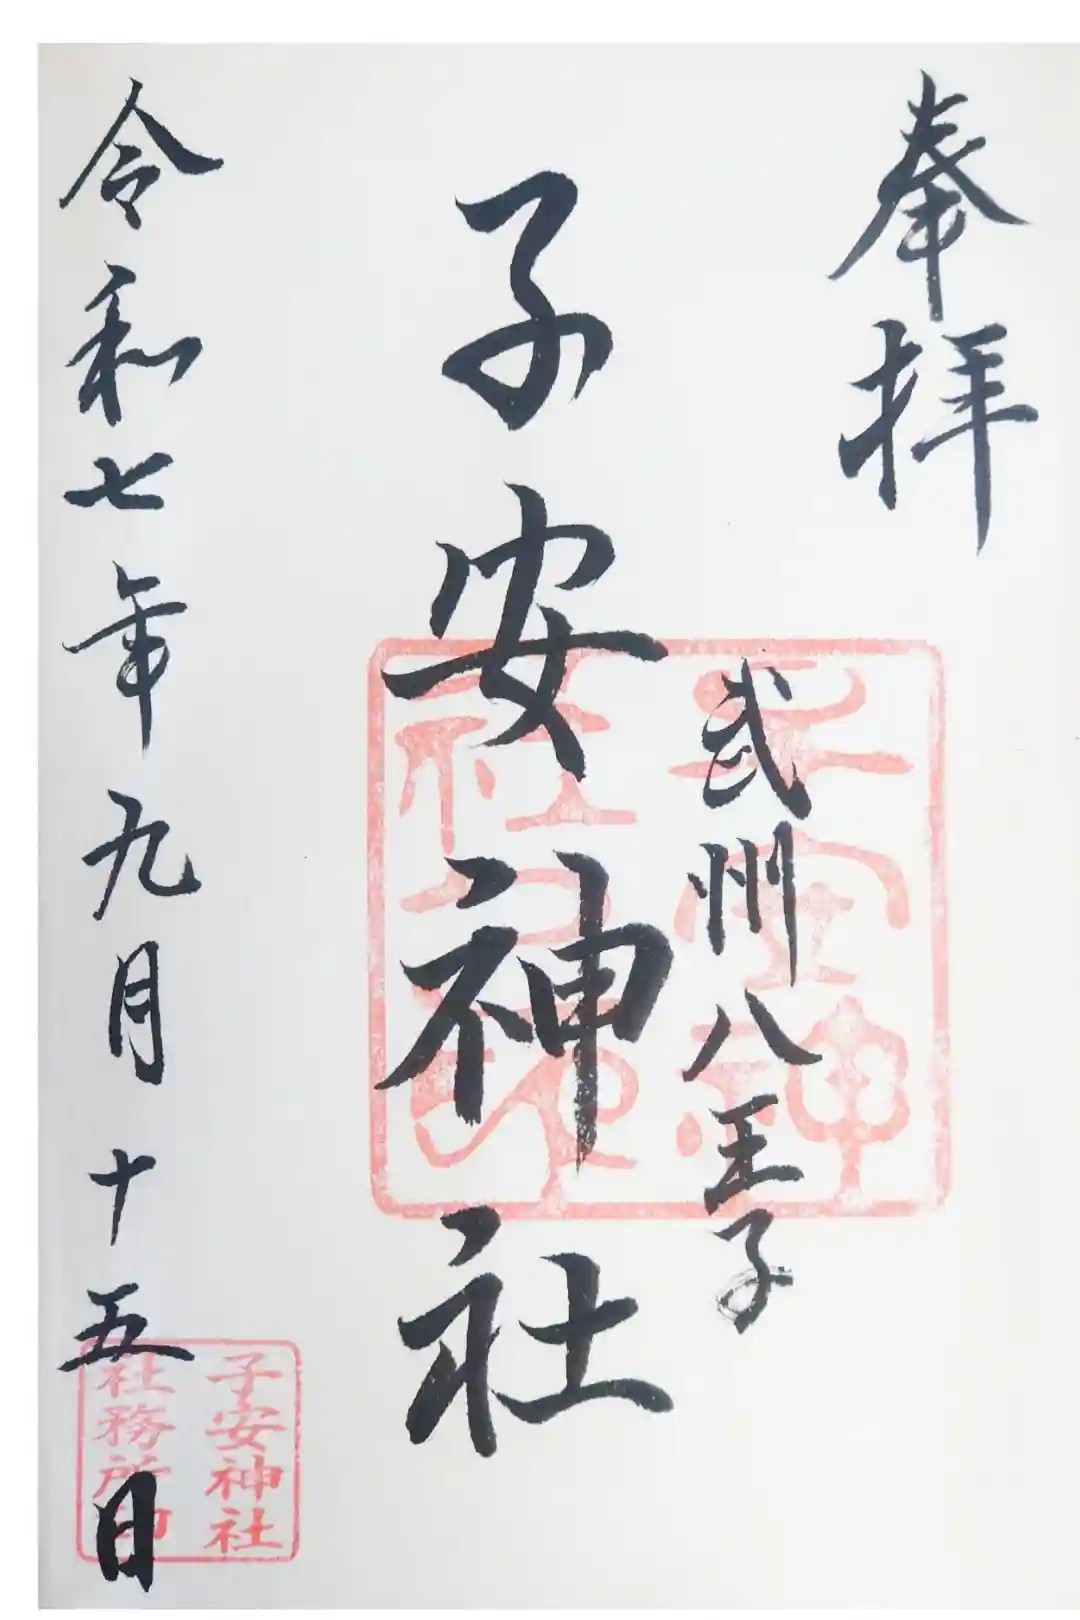 奉拝
武州八王子
子安神社
令和七年九月十五日
子安神社
社務所印